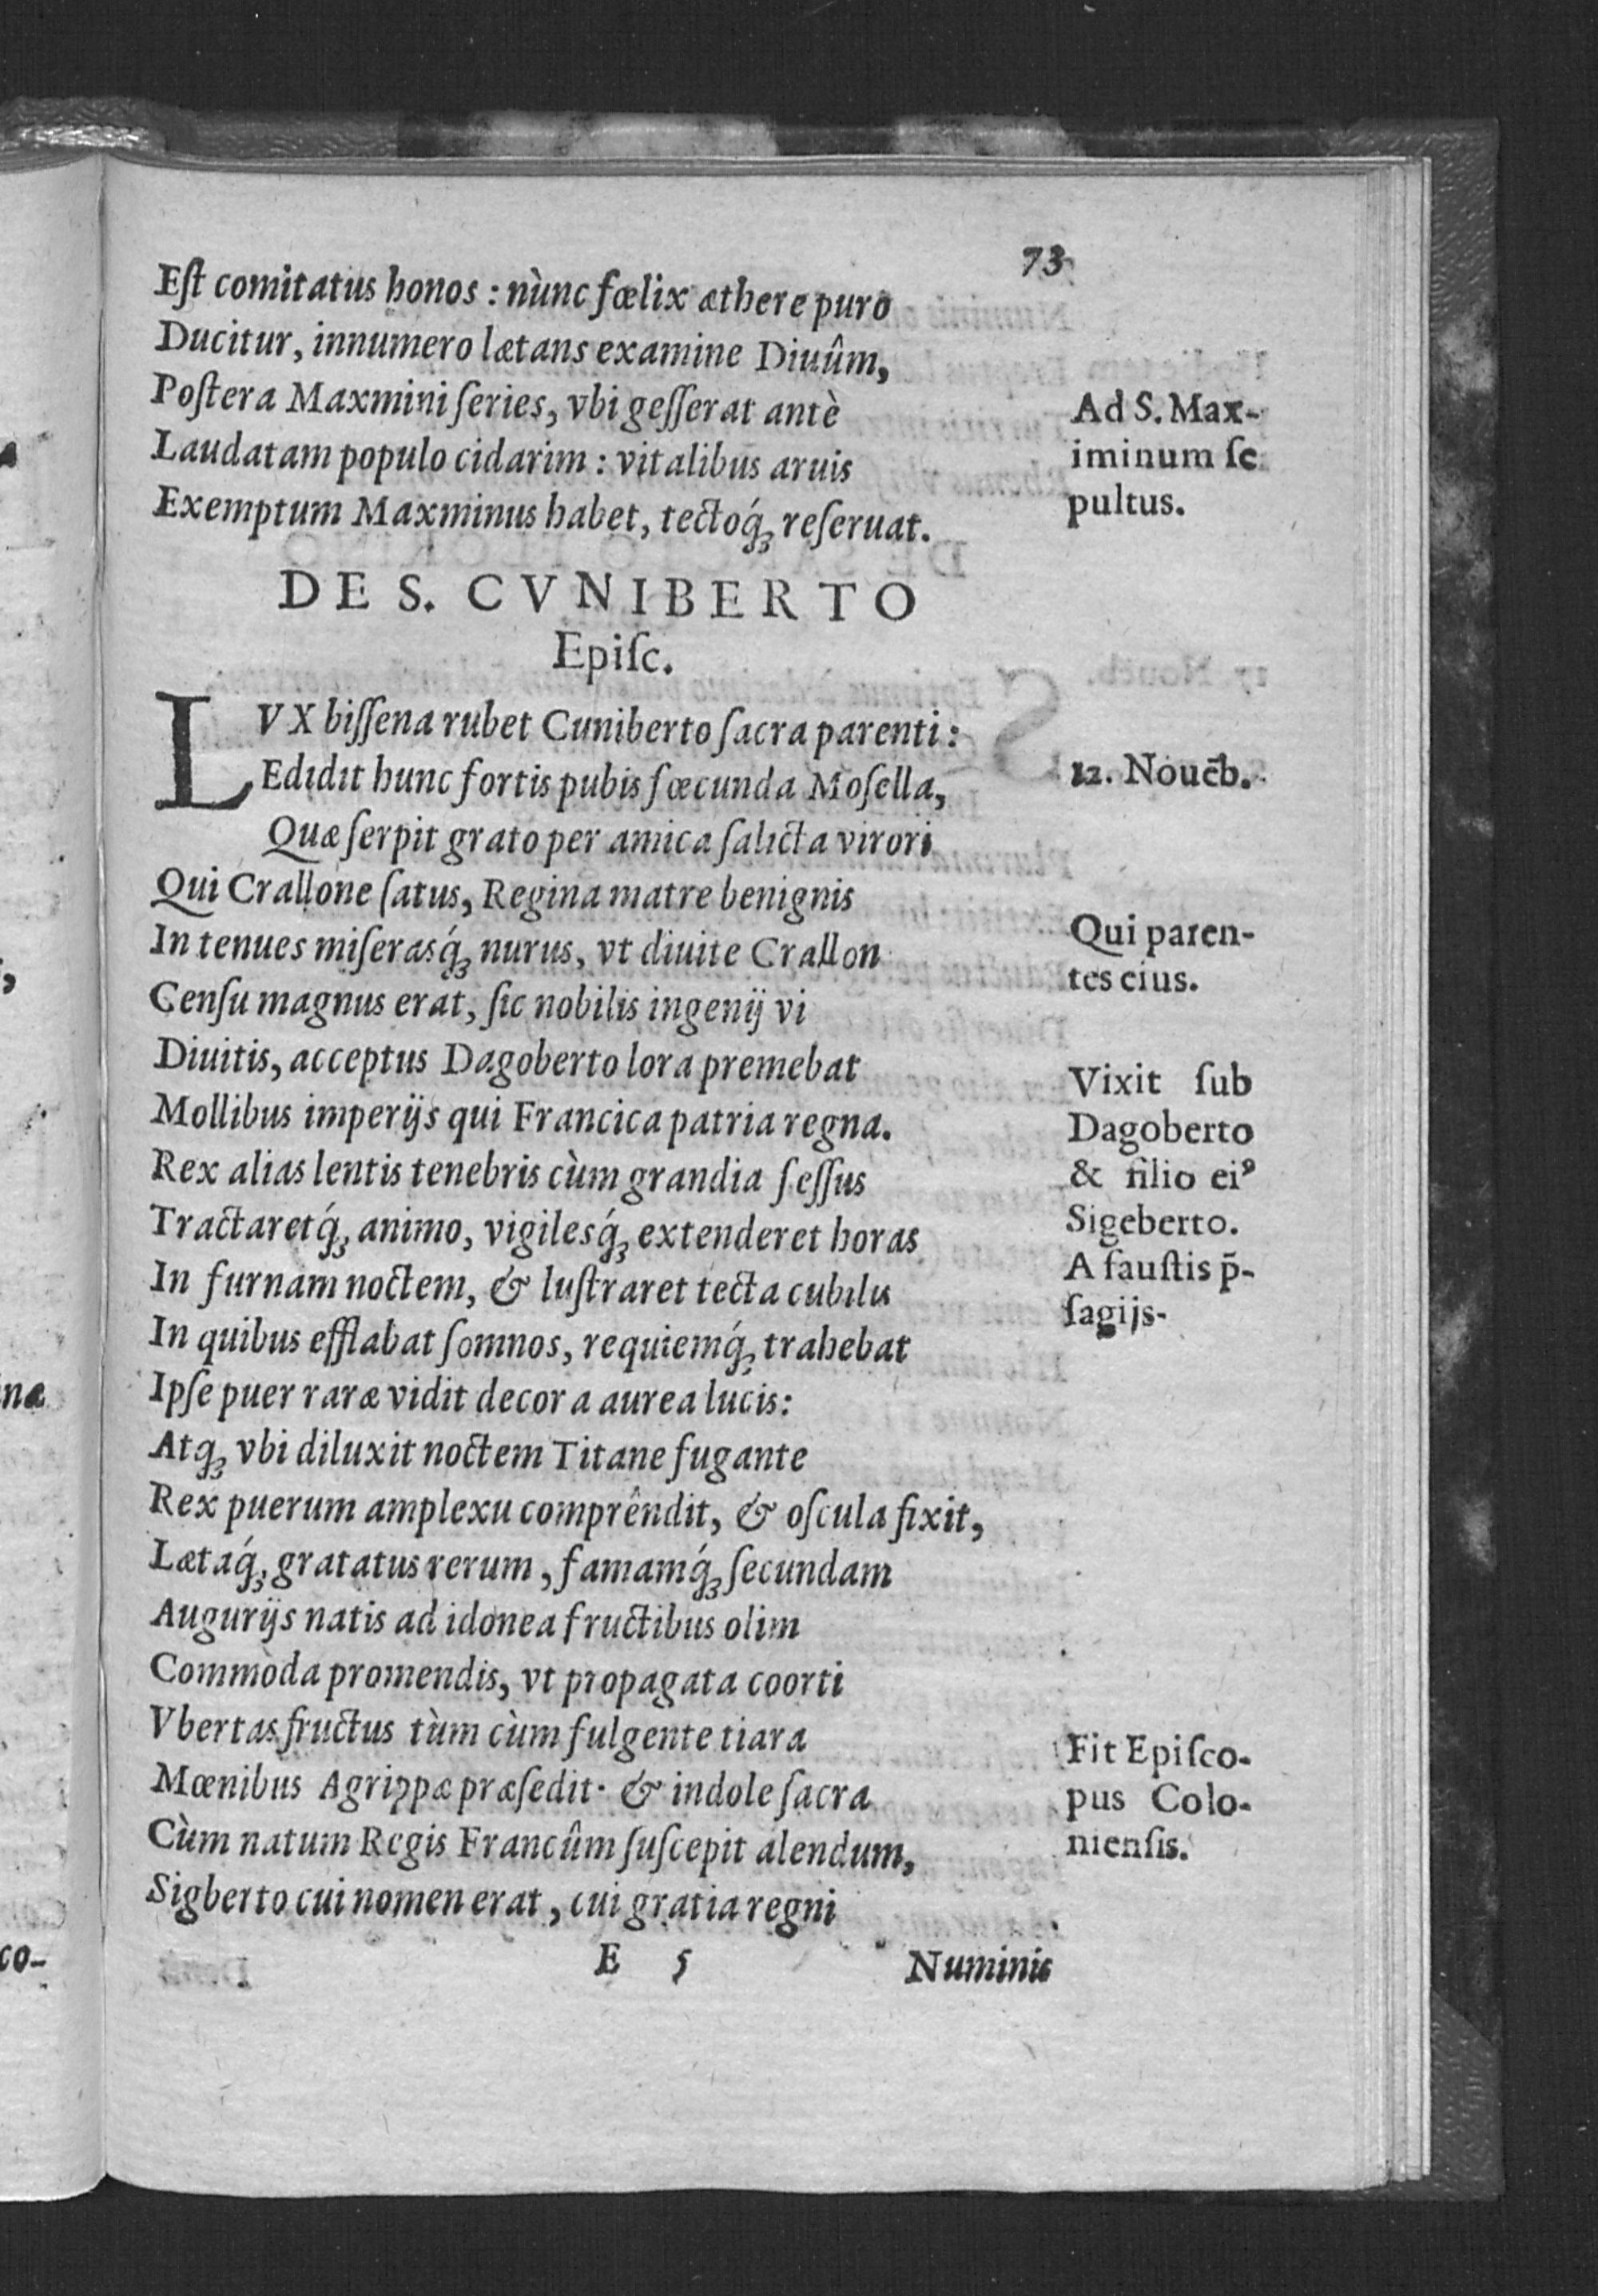 73
Eſt comitatus honos : nùnc fœlix æthere puro
Ducitur, innumero lætans examine Diuûm,
Poſtera Maxmini ſeries, vbi geſſerat antè
Laudatam populo cidarim : vitalibus aruis
Exemptum Maxminus habet, tectoq́ꝫ reſeruat.
Ad S. Max-
iminum ſe
pultus.
DE S. CVNIBERTO
Epiſc.
LVX biſſena rubet Cuniberto ſacra parenti :
Edidit hunc fortis pubis fœcunda Moſella,
Quæ ſerpit grato per amica ſalicta virori
12. Nouēb.
Qui Crallone ſatus, Regina matre benignis
In tenues miſerasq́ꝫ nurus, vt diuite Crallon
Cenſu magnus erat, ſic nobilis ingenij vi
Qui paren-
tes eius.
Diuitis, acceptus Dagoberto lora premebat
Mollibus imperijs qui Francica patria regna.
Rex alias lentis tenebris cùm grandia feſſus
Tractaretq́ꝫ animo, vigilesq́ꝫ extenderet horas
In furnam noctem, & luſtraret tecta cubilis
In quibus efflabat ſomnos, requiemq́ꝫ trahebat
Vixit ſub
Dagoberto
& filio eiꝰ
Sigeberto.
A fauſtis p̄-
ſagijs-
Ipſe puer raræ vidit decora aurea lucis:
Atqꝫ vbi diluxit noctem Titane fugante
Rex puerum amplexu comprêndit, & oſcula fixit,
Lætaq́ꝫ gratatus rerum, famamq́ꝫ ſecundam
Augurijs natis ad idonea fructibus olim
Commòda promendis, vt propagata coorti
Vbertas fructus tùm cùm fulgente tiara
Mœnibus Agrippæ præſedit· & indole ſacra
Cùm natum Regis Francûm ſuſcepit alendum,
Sigberto cui nomen erat, cui gratia regni
Fit Epiſco-
pus Colo-
nienſis.
E 5
Numinis